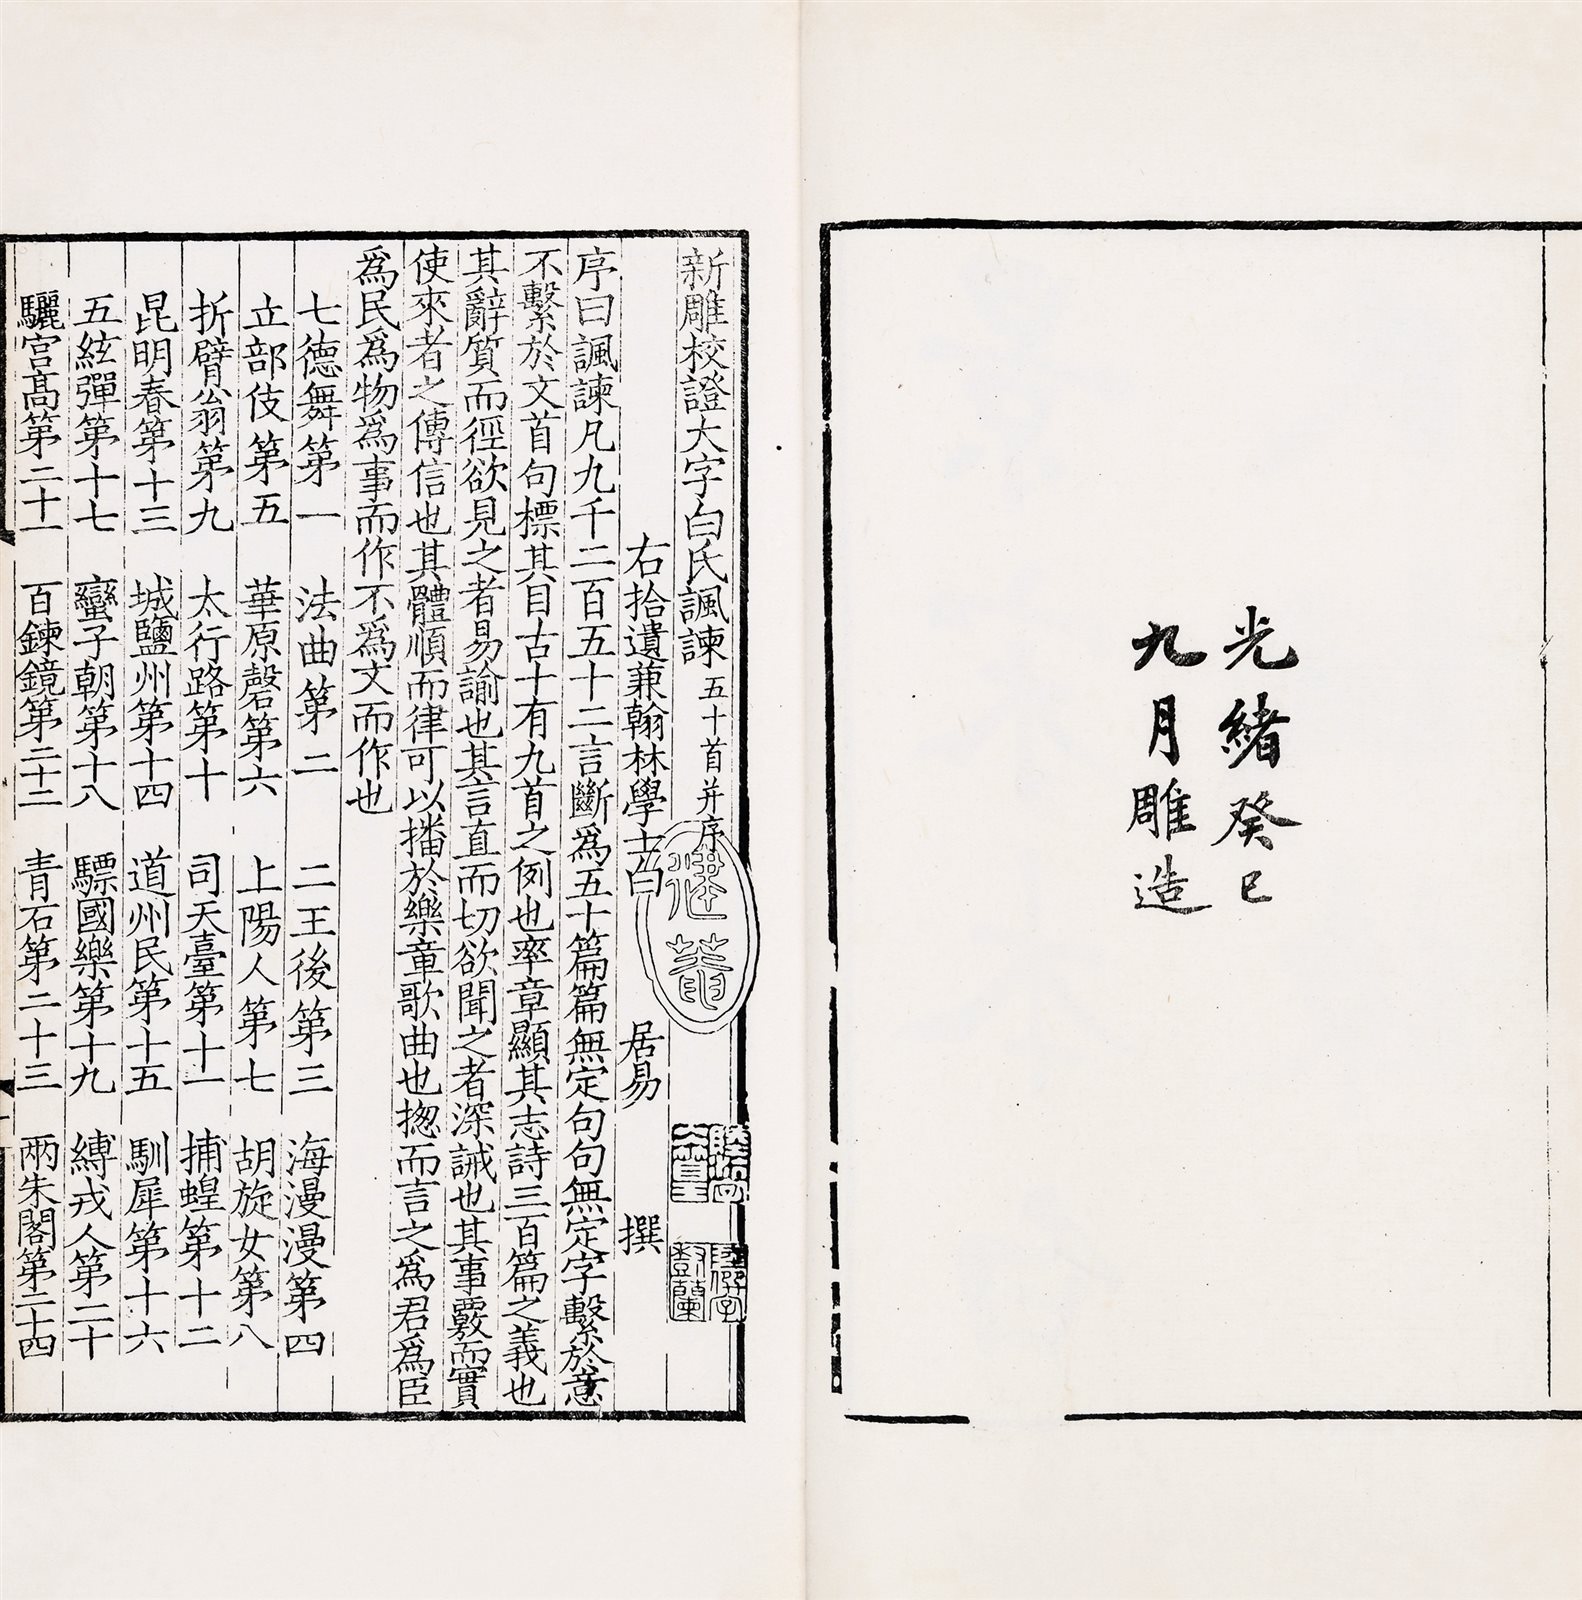 光緒癸巳
九月雕造
新雕校證大字白氏諷諫五十首并序
右拾遺兼翰林學士白居易撰
序曰諷諫凡九千二百五十二言斷為五十篇篇無定句句無定字繫於意
不繫於文首句標其目古十有九首之例也率章顯其志詩三百篇之義也
其辭質而徑欲見之者易諭也其言直而切欲聞之者深誡也其事覈而實
使來者之傳信也其體順而律可以播於樂章歌曲也揔而言之為君為臣
為民為物為事而作不為文而作也
七德舞第一 法曲第二 二王後第三 海漫漫第四
立部伎第五 華原磬第六 上陽人第七 胡旋女第八
折臂翁第九 太行路第十 司天臺第十一 捕蝗第十二
昆明春第十三 城鹽州第十四 道州民第十五 馴犀第十六
五絃彈第十七 蠻子朝第十八 驃國樂第十九 縛戎人第二十
驪宮髙第二十一 百鍊鏡第二十二 青石第二十三 兩朱閣第二十四